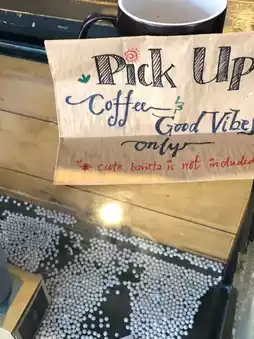 Pick Up
Coffee & Good Vibes
only
* cute barista is not included